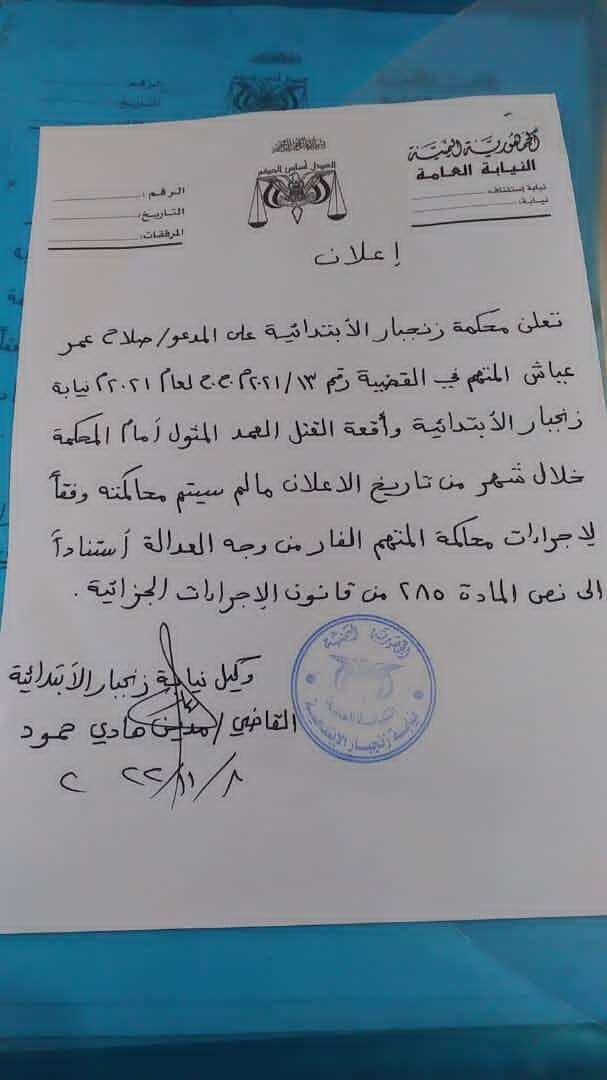 الجمهورية اليمنية
النيابة العامة
نيابة إستئناف:
نيابة:
العدل أساس الحكم
الرقم:
التاريخ:
المرفقات:
إعلان
تعلن محكمة زنجبار الأبتدائية على المدعو/صلاح عمر
عباش المتهم في القضية رقم ١٣/٢٠٢١م ج.ج لعام ٢٠٢١م نيابة
زنجبار الأبتدائية وأقعة القتل العمد المثول أمام المحكمة
خلال شهر من تاريخ الاعلان مالم سيتم محاكمته وفقاً
لاجراءات محاكمة المتهم الفار من وجه العدالة أستناداً
الى نص المادة ٢٨٥ من قانون الإجراءات الجزائية.
وكيل نيابة زنجبار الأبتدائية
القاضي/ هادي حمود
الجمهورية اليمنية
النيابة العامة
نيابة زنجبار الابتدائية
الرقم:
التاريخ: